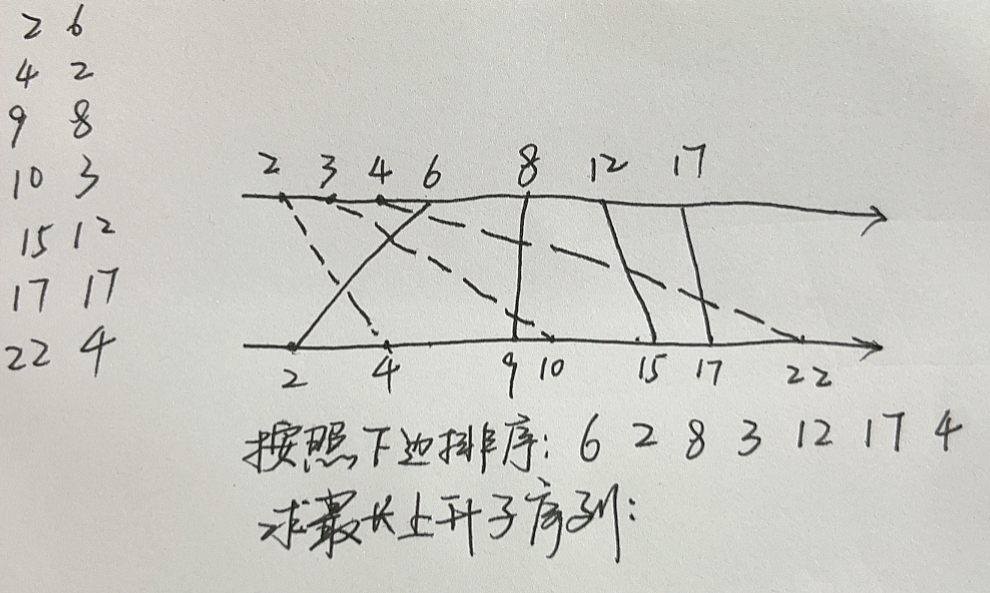 2 6
4 2
9 8
10 3
15 12
17 17
22 4
2 3 4 6 8 12 17
2 4 9 10 15 17 22
按照下边排序: 6 2 8 3 12 17 4
求最长上升子序列: